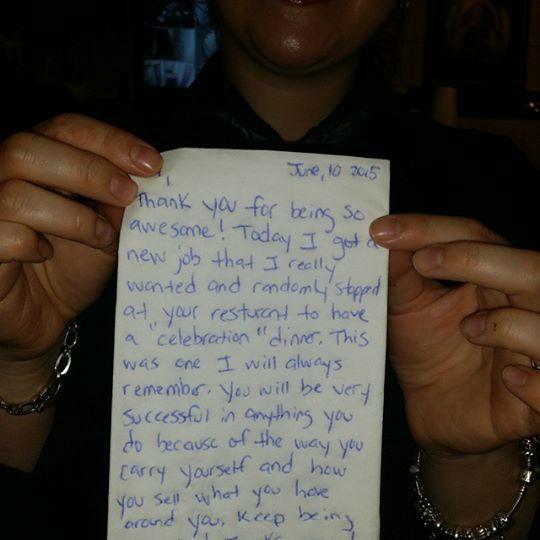 June, 10 2015
Thank you for being so
awesome! Today I got a
new job that I really
wanted and randomly stopped
at your resturant to have
a "celebration" dinner. This
was one I will always
remember. You will be very
successful in anything you
do because of the way you
carry yourself and how
you sell what you have
around you. Keep being